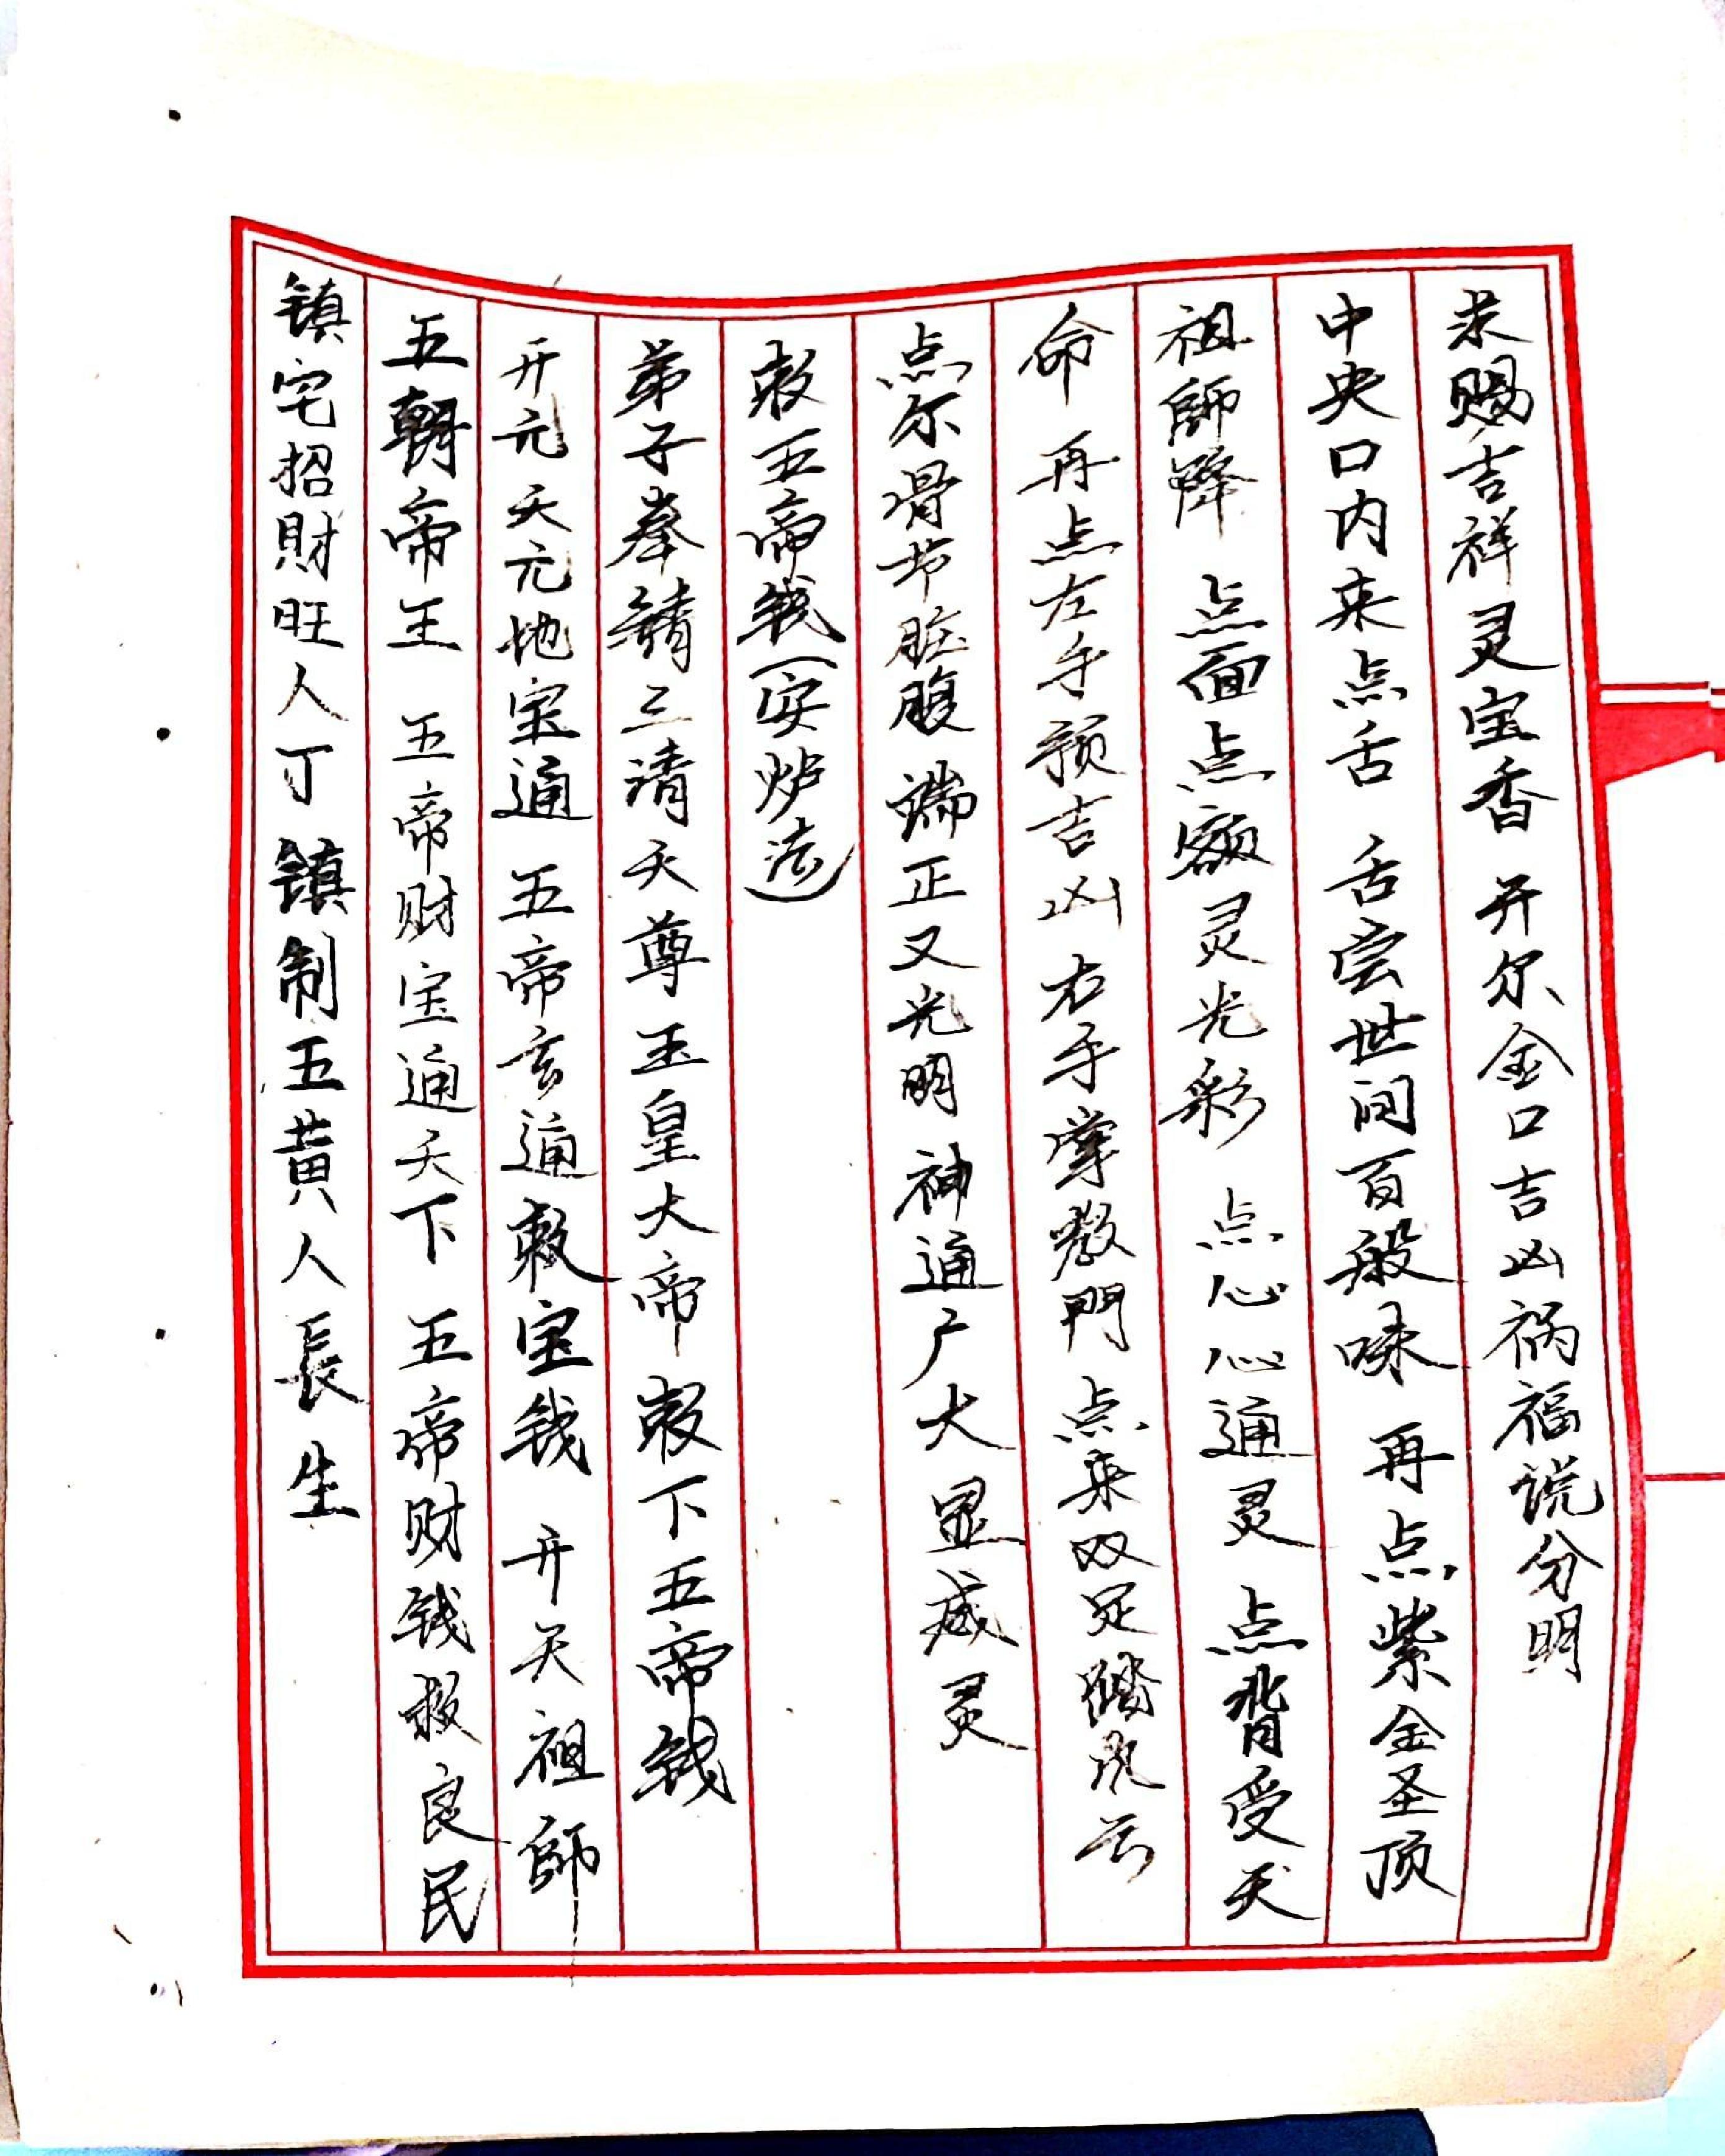 求赐吉祥灵宝香 开尔金口吉凶祸福说分明
中央口内来点舌 舌尝世间百般味 再点紫金圣顶
祖師降 点面点额灵光彩 点心心通灵 点背受天
命 再点左手预吉凶 右手掌教門 点来双足踏风云
点尔骨节脏腹 端正又光明 神通广大显威灵
敕五帝钱(安炉法)
弟子奉請三清天尊 玉皇大帝 敕下五帝钱
开元天元地宝通 五帝玄通敕宝钱 开天祖師
五朝帝王 五帝财宝通天下 五帝财钱救良民
镇宅招財旺人丁 镇制五黄人長生